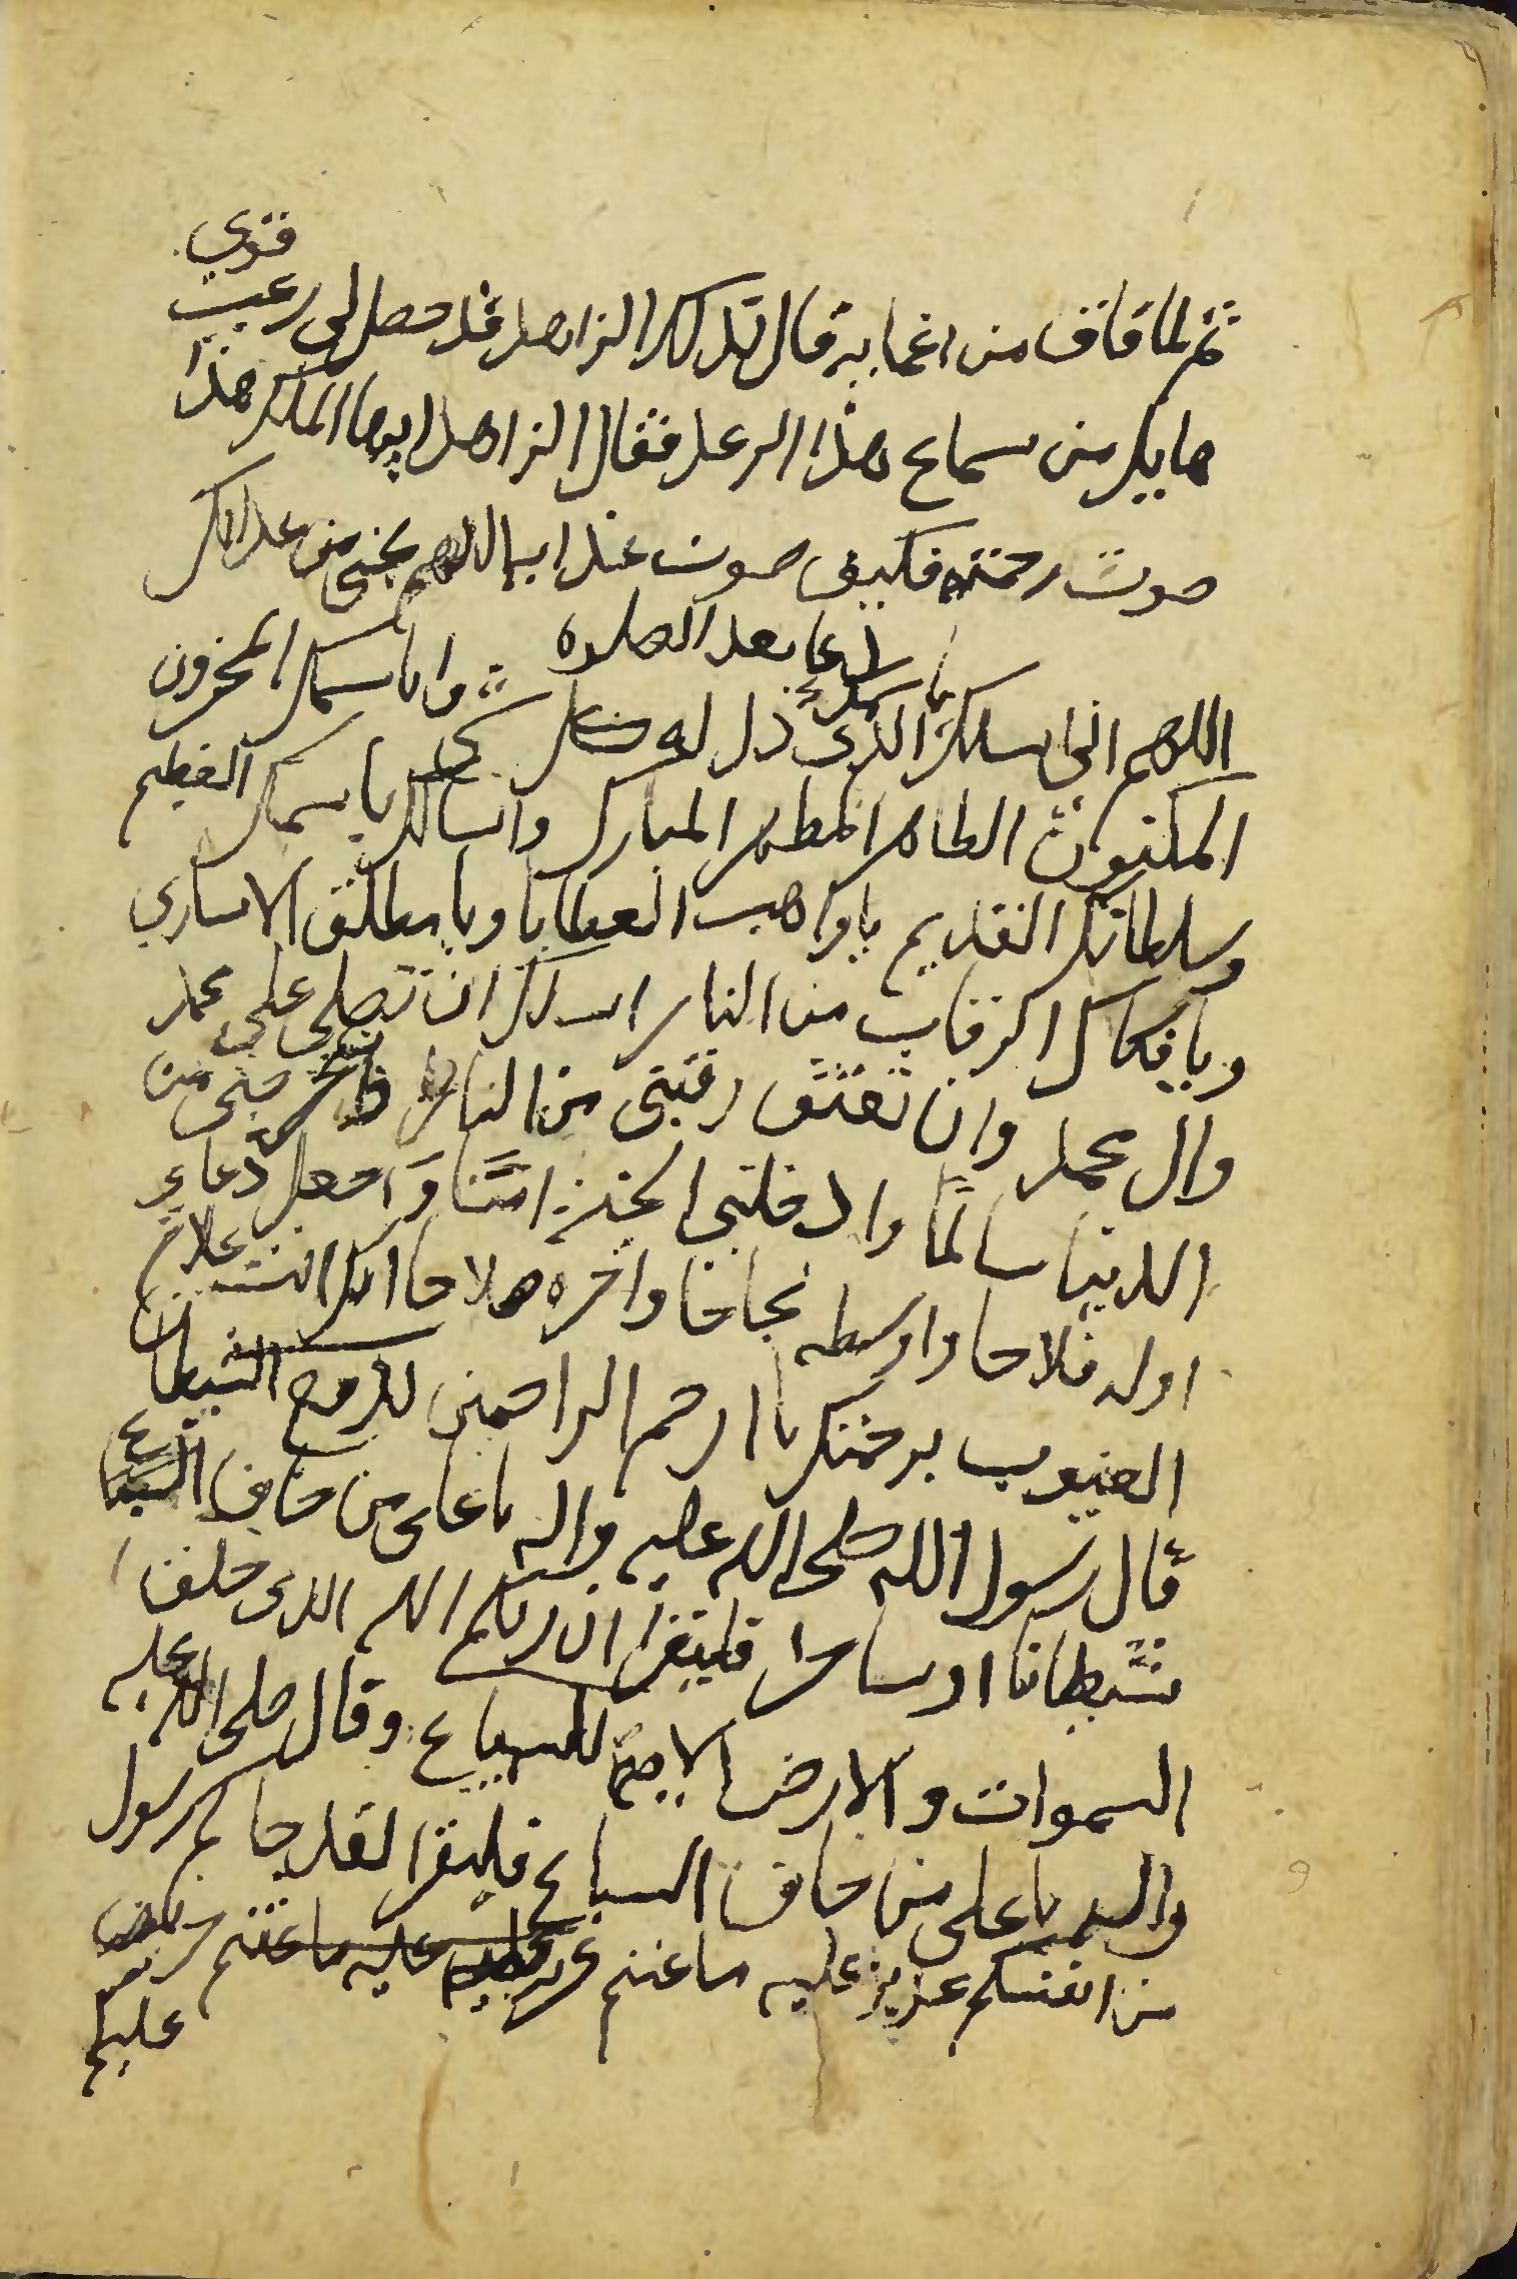 قوي
ثم لما فاق من اغمايه قال لذلك الزاهد قد حصل لي رعب
هايل من سماع هذا الرعد فقال الزاهد ايها الملك هذا
صوت رحمته فكيف صوت عذابه اللهم نجني من عذابك
دعا بعد الصلوه
اللهم اني اسلك باسمك الذي ذل له كل شي واباسمك المخزون
المكنون الطاهر المطهر المبارك واسالك باسمك العظيم
وسلطانك القديم يا واهب العطايا ويا مطلق الاساري
ويا فكاك الرقاب من النار اسالك ان تصلي على محمد
وال محمد وان تعتق رقبتي من النار وتخرجني من
الدنيا سالمًا وادخلني الجنة امنا واجعل دعاي
اوله فلاحا واوسطه نجاحا واخره صلاحا انك انت علام
الغيوب برحمتك يا ارحم الراحمين لدفع الشيطان
قال رسول الله صلى الله عليه واله يا على من خاف
شيطانا او ساحرا فليقرا ان ربكم الله الذى خلق
السموات والارض الايه للسباع وقال صلى الله عليه
واله يا على من خاف السباع فليقرا لقد جاكم رسول
من انفسكم عزيز عليه ما عنتم عليه ما عنتم حريص
عليكم